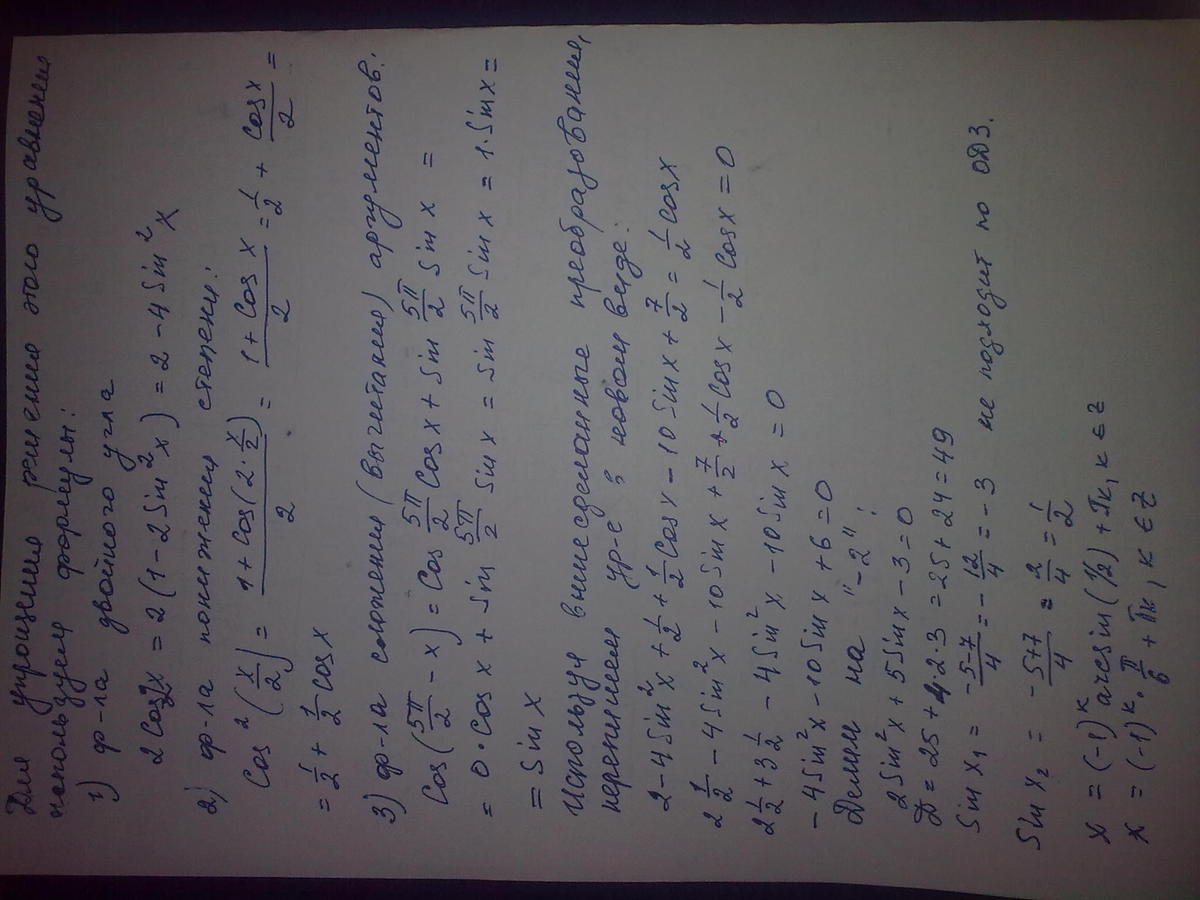 Для упрощения решения этого уравнения
используем формулы:
1) ф-ла двойного угла
2 cos 2x = 2 (1 - 2 sin² x) = 2 - 4 sin² x
2) ф-ла понижения степени:
cos² (x/2) = (1 + cos (2 · x/2))/2 = (1 + cos x)/2 = 1/2 + cos x/2 =
= 1/2 + 1/2 cos x
3) ф-ла сложения (вычитания) аргументов:
cos (5π/2 - x) = cos 5π/2 cos x + sin 5π/2 sin x =
= 0 · cos x + sin 5π/2 sin x = sin 5π/2 sin x = 1 · sin x =
= sin x
Используя вышесделанные преобразования,
перепишем ур-е в новом виде:
2 - 4 sin² x + 1/2 + 1/2 cos x - 10 sin x + 7/2 = 1/2 cos x
2 1/2 - 4 sin² x - 10 sin x + 7/2 + 1/2 cos x - 1/2 cos x = 0
2 1/2 + 3 1/2 - 4 sin² x - 10 sin x = 0
- 4 sin² x - 10 sin x + 6 = 0
Делим на "-2":
2 sin² x + 5 sin x - 3 = 0
D = 25 + 4 · 2 · 3 = 25 + 24 = 49
sin x₁ = (-5-7)/4 = - 12/4 = - 3 не подходит по ОДЗ.
sin x₂ = (-5+7)/4 = 2/4 = 1/2
x = (-1)ᵏ arcsin (1/2) + πk, k ∈ Z
x = (-1)ᵏ · π/6 + πk, k ∈ Z